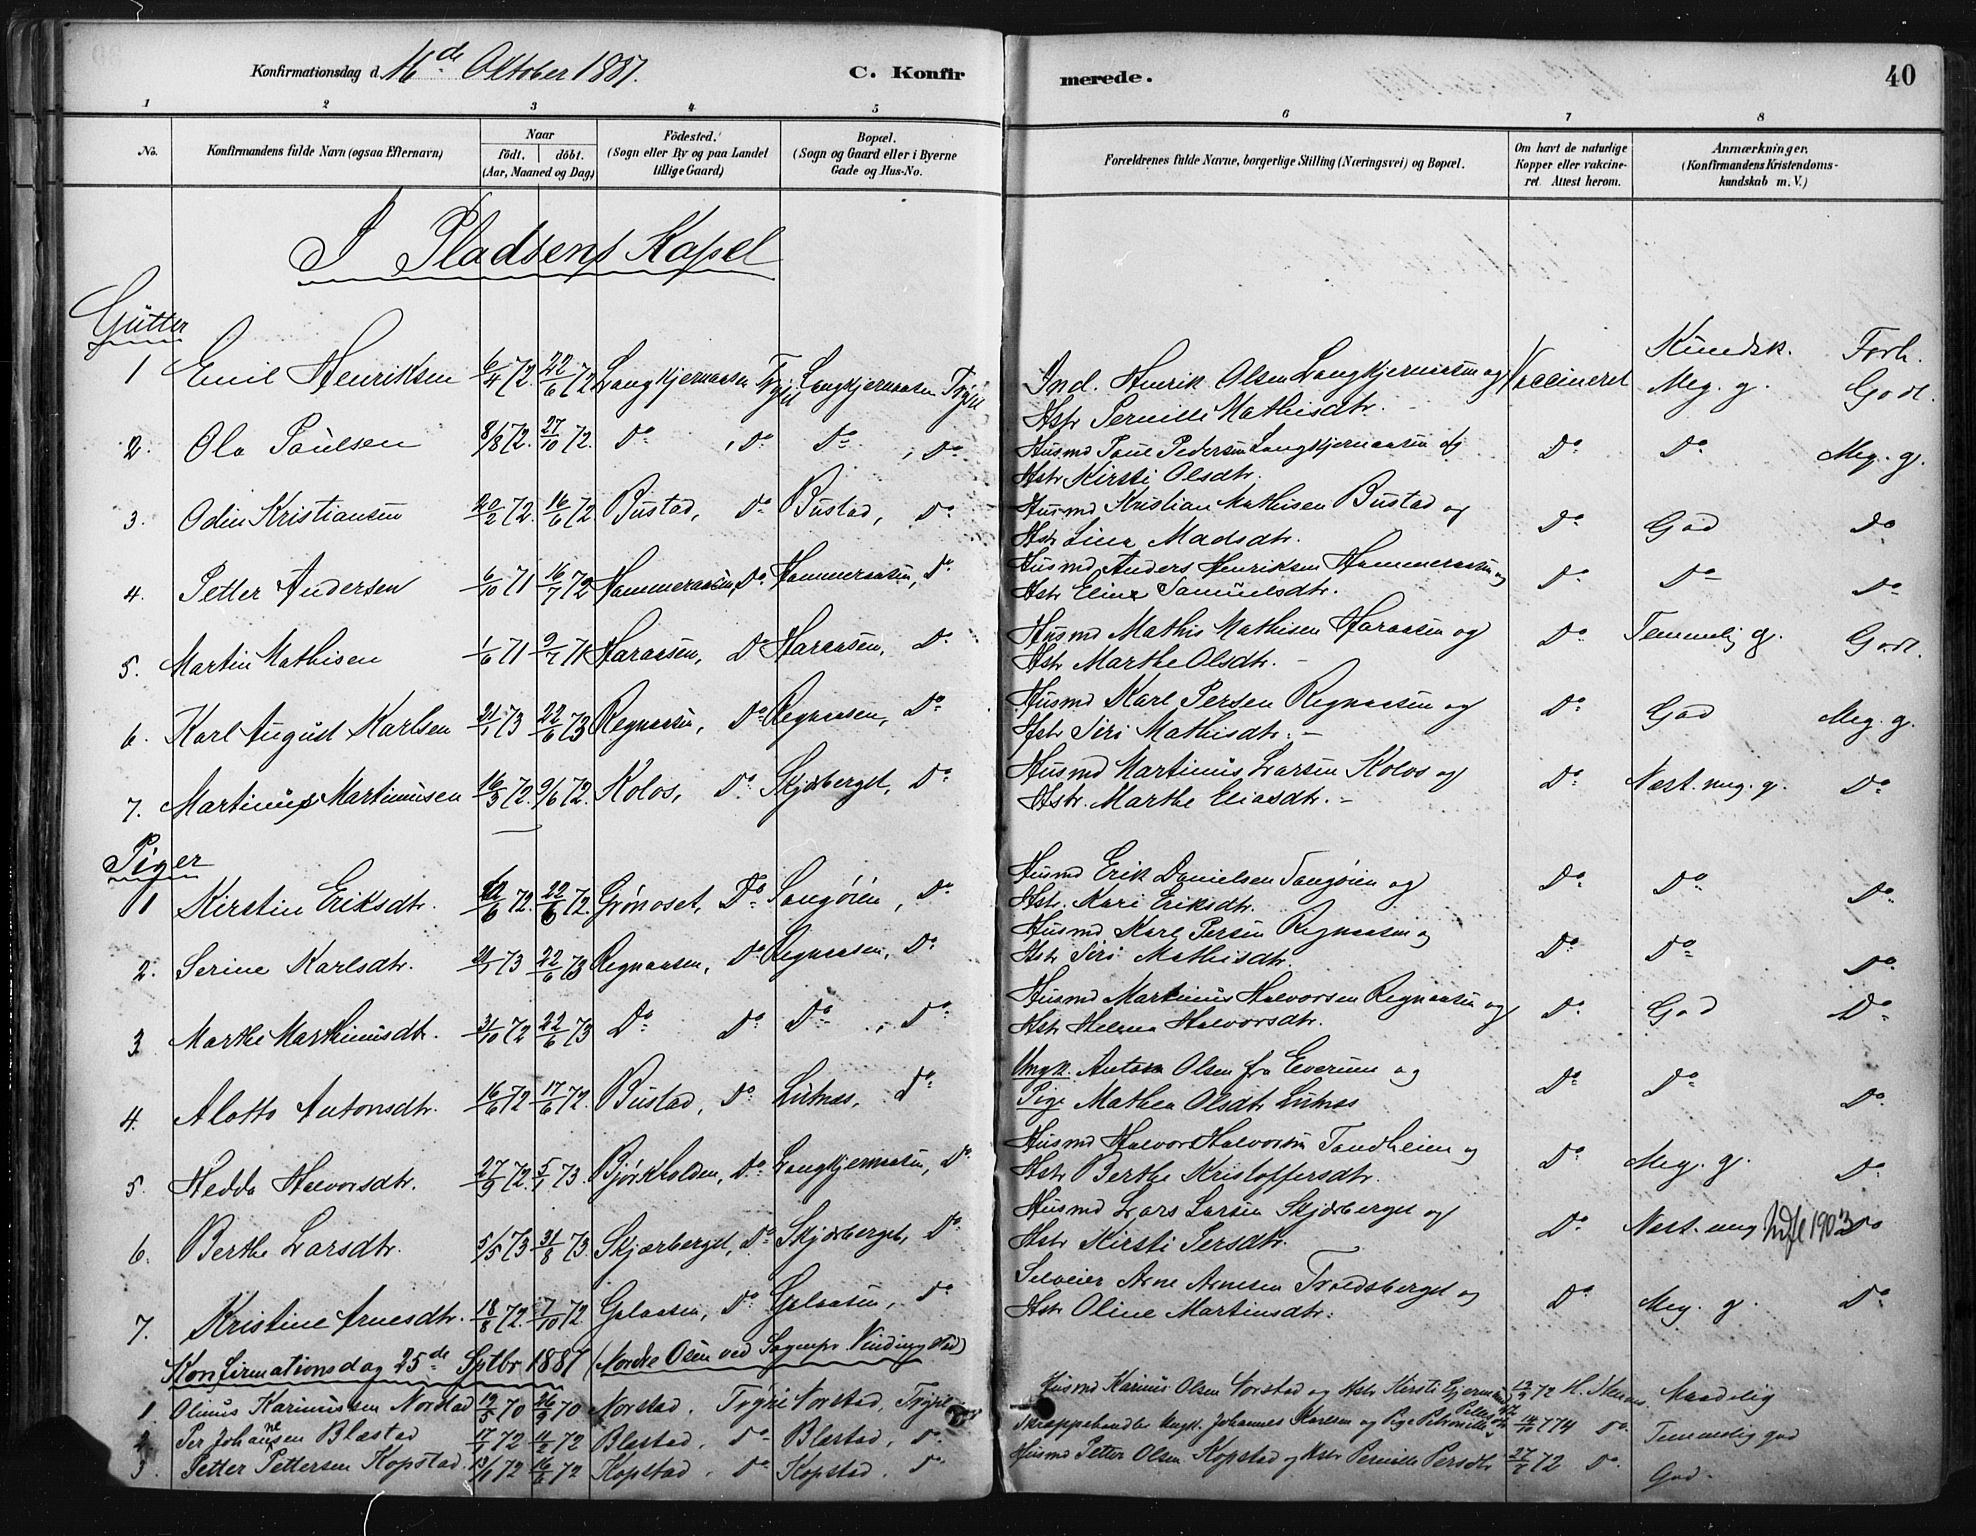 Konfirmationsdag d. 16de Oktober 1887. C. Konfirmerede. 40
1 2 3 4 5 6 7 8
No. Konfirmandens fulde Navn (ogsaa Efternavn) Naar født. døbt. (Aar, Maaned og Dag) Fødested. (Sogn eller By og paa Landet tillige Gaard) Bopæl. (Sogn og Gaard eller i Byerne Gade og Hus-No. Forældrenes fulde Navne, borgerlige Stilling (Næringsvei) og Bopæl. Om havt de naturlige Kopper eller vakcineret. Attest herom. Anmærkninger. (Konfirmandens Kristendomskundskab m. V.)
I Pladsens Kapel
Gutter
Kundsk. Forh.
1 Emil Henriksen 6/4 72. 22/6 72 Langkjernaasen Trysil Langkjernaasen Trysil Ind. Henrik Olsen Langkjernaasen og Vaccineret Meg. g. Godt.
Hstr Pernille Mathisdtr.
2. Ola Paulsen 8/8 72. 27/10 72. Do , Do Do , Do Husmd Paul Pedersen Langkjernaasen og Do Do Meg. g.
Hstr Kirsti Olsdtr.
3. Odin Kristiansen 20/2 72. 16/6 72 Bustad, Do Bustad, Do Husmd Kristian Mathisen Bustad og Do God Do
Hstr Lina Madsdtr.
4. Petter Andersen 6/10 71 16/7 72 Hammeraasen, Do Hammeraasen, Do Husmd Anders Henriksen Hammeraasen og Do Do Do
Hstr Eline Samuelsdtr.
5. Martin Mathisen 1/6 71 9/7 71 Haraasen, Do Haraasen, Do Husmd Mathis Mathisen Haraasen og Do Temmelig g. Godt.
Hstr Marthe Olsdtr. –
6. Karl August Karlsen 21/1 73 22/6 73 Regnaasen, Do Regnaasen, Do Husmd Karl Persen Regnaasen og Do God Meg. g.
Hstr Siri Mathisdtr. –
7. Martinus Martinusen 16/3 72. 9/6 72. Kolos, Do Skjærberget, Do Husmd Martinus Larsen Kolos og Do Næst. meg. g. Do
Hstr. Marthe Eliasdtr. –
Piger
1 Kirstin Eriksdtr. 72. 22/6 72. Grønoset, Do Sangøien, Do Husmd Erik Danielsen Sangøien og Do Do Do
Hstr. Kari Eriksdtr.
2. Serine Karlsdtr. 21/1 73 22/6 73 Regnaasen, Do Regnaasen, Do Husmd Karl Persen Regnaasen og Do Do Do
Hstr Siri Mathisdtr.
3 Marthe Marthinusdtr. 31/10 72 22/6 73 Do Do Do , Do Husmd Martinus Halvorsen Regnaasen og Do God Do
Hstr Helena Halvorsdtr.
4. Alotte Antonsdtr. 16/6 72 17/6 72. Bustad, Do Lutnæs, Do Ungk. Anton Olsen fra Elverum og Do Do Do
Pige Mathea Olsdtr Lutnes
5. Hedda Halvorsdtr. 27/9 72. 5/1 73. Bjørkholden, Do Langkjernaasen, Do Husmd Halvor Halvorsen Tandheien og Do Meg. g. Do
Hstr Berthe Kristoffersdtr.
6. Berthe Larsdtr. 5/5 73 31/8 73. Skjærberget, Do Skjærberget, Do Husmd Lars Larsen Skjærberget og Do Næst. meg. 1903 Do
Hstr Kirsti Persdtr.
7. Kristine Arnesdtr. 18/8 72. 7/10 72. Galaasen, Do Galaasen, Do Selveier Arne Arnesen Troldsberget og Do Meg. g. Do
Hstr Oline Martinsdtr.
Konfirmationsdag 25de Sptbr. 1887 (Nordre Osen ved Sognepr.
1. Olinus Karinussen Norstad 12/5 70 26/9 70 Norstad, Trysil Norstad, Trysil Husmd Karinus Olsen Norstad og Hstr Kirsti 72 Maadelig
2. Per Johannesen Blæstad 17/1 72 11/2 72 Blæstad, Do Blæstad, Do Skrappehandler Ungk. Johannes Karlsen og Pige Petronille 74 Do Temmelig god
3. Petter Pettersen Kopstad. 13/6 72 16/6 72 Kopstad, Do Kopstad, Do Husmd Petter Olsen Kopstad og Hstr Pernille Persdtr 27/7 72 Do God.